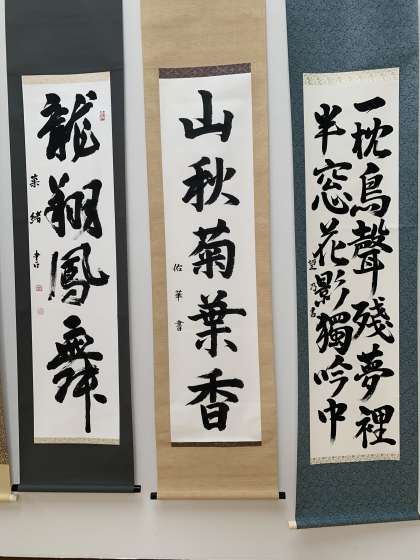 一枕鳥聲殘夢裡
半窓花影獨吟中
望乃書
山秋菊葉香
佑華書
龍翔鳳舞
菜緒